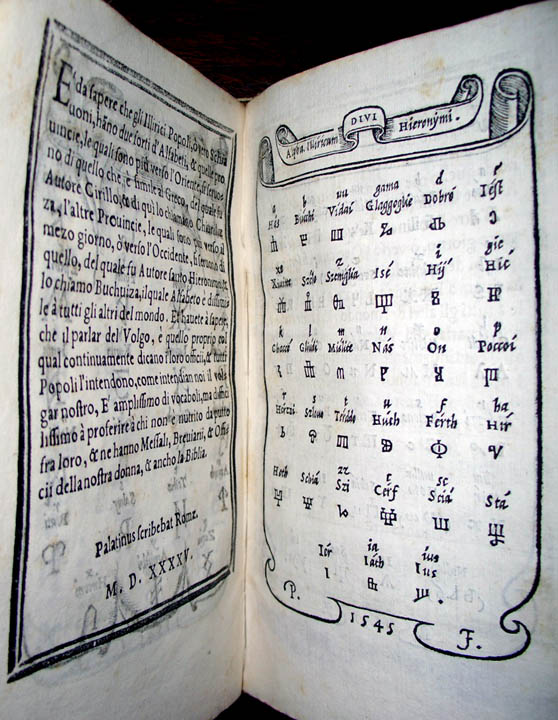 E' da sapere che gli Illirici Popoli, overo Schia
uoni, hãno due sorti d'Alfabeti, & quelle pro
uincie, le quali sono piu verso l'Oriente, si seruo
no di quello che è simile al Greco, del quale fu
Autore Cirillo, & di quì lo chiamano Chiuriliz
za, l'altre Prouincie, le quali sono piu verso il
mezo giorno, ò verso l'Occidente, si seruono di
quello, del quale fu Autore santo Hieronimo, &
lo chiamo Buchuiza, il quale Alfabeto è dissimi
le à tutti gli altri del mondo. Et hauete à sapere,
che il parlar del Volgo, è quello proprio col
qual continuamente dicano i loro officii, & tutti
Popoli l'intendono, come intendian noi il vol
gar nostro, E' amplissimo di vocaboli, ma difficil
lissimo à proferire à chi non è nutrito da putto
fra loro, & ne hanno Messali, Breuiarii, & Offi
cii della nostra donna, & ancho la Biblia.
Palatinus scribebat Rome.
M. D. XXXXV.
Alpha. Illiricum DIVI Hieronymi.
a b uu gama d e
Has Buchi Vidas Glaggoglie Dobro Iest
z i gie
Zemglia Isé Hij Hié
k l m n o p
Chacci Gliudi Mislice Nás On Poccoi
r s t u f ha
Herzi Slouo Tördo Huch Férth Hir
zz c sc
Hoth Schiá Szi Cerf Sciá Stá
ia ius
Ier Iath Ius
P. 1545 F.